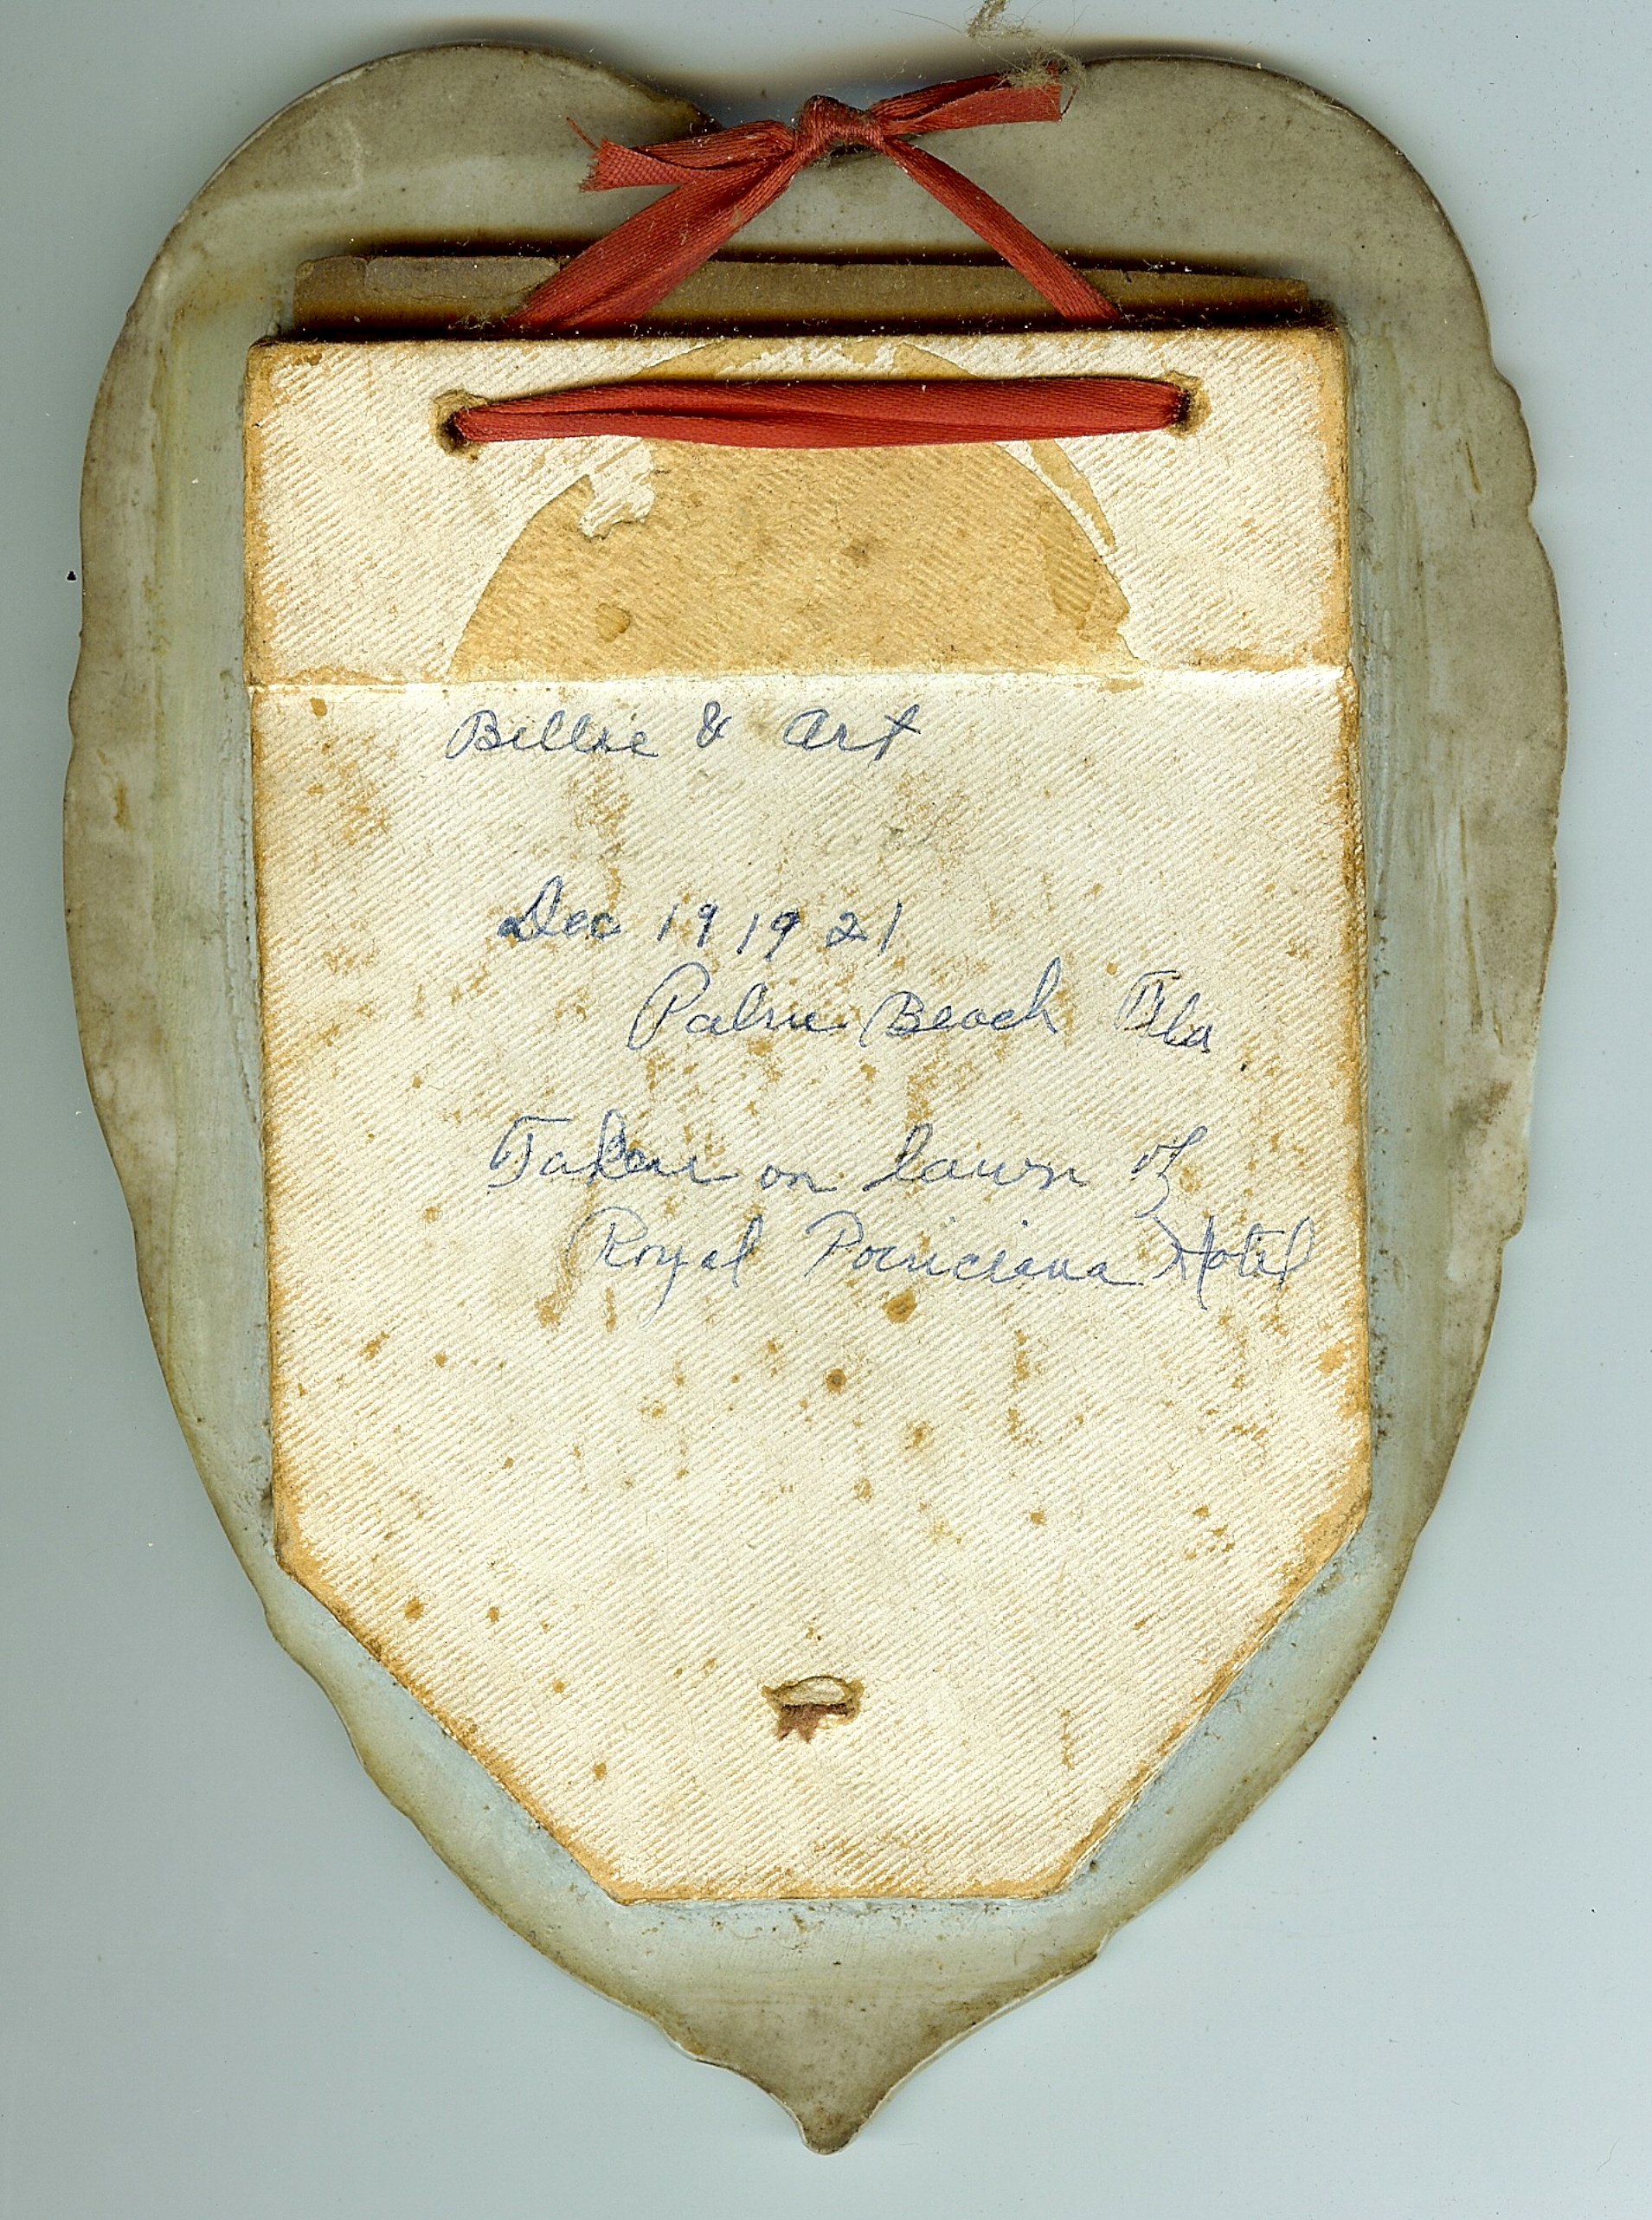 Billie & Art
Dec 19 1921
Palm Beach Fla.
Taken on lawn of
Royal Poinciana Hotel